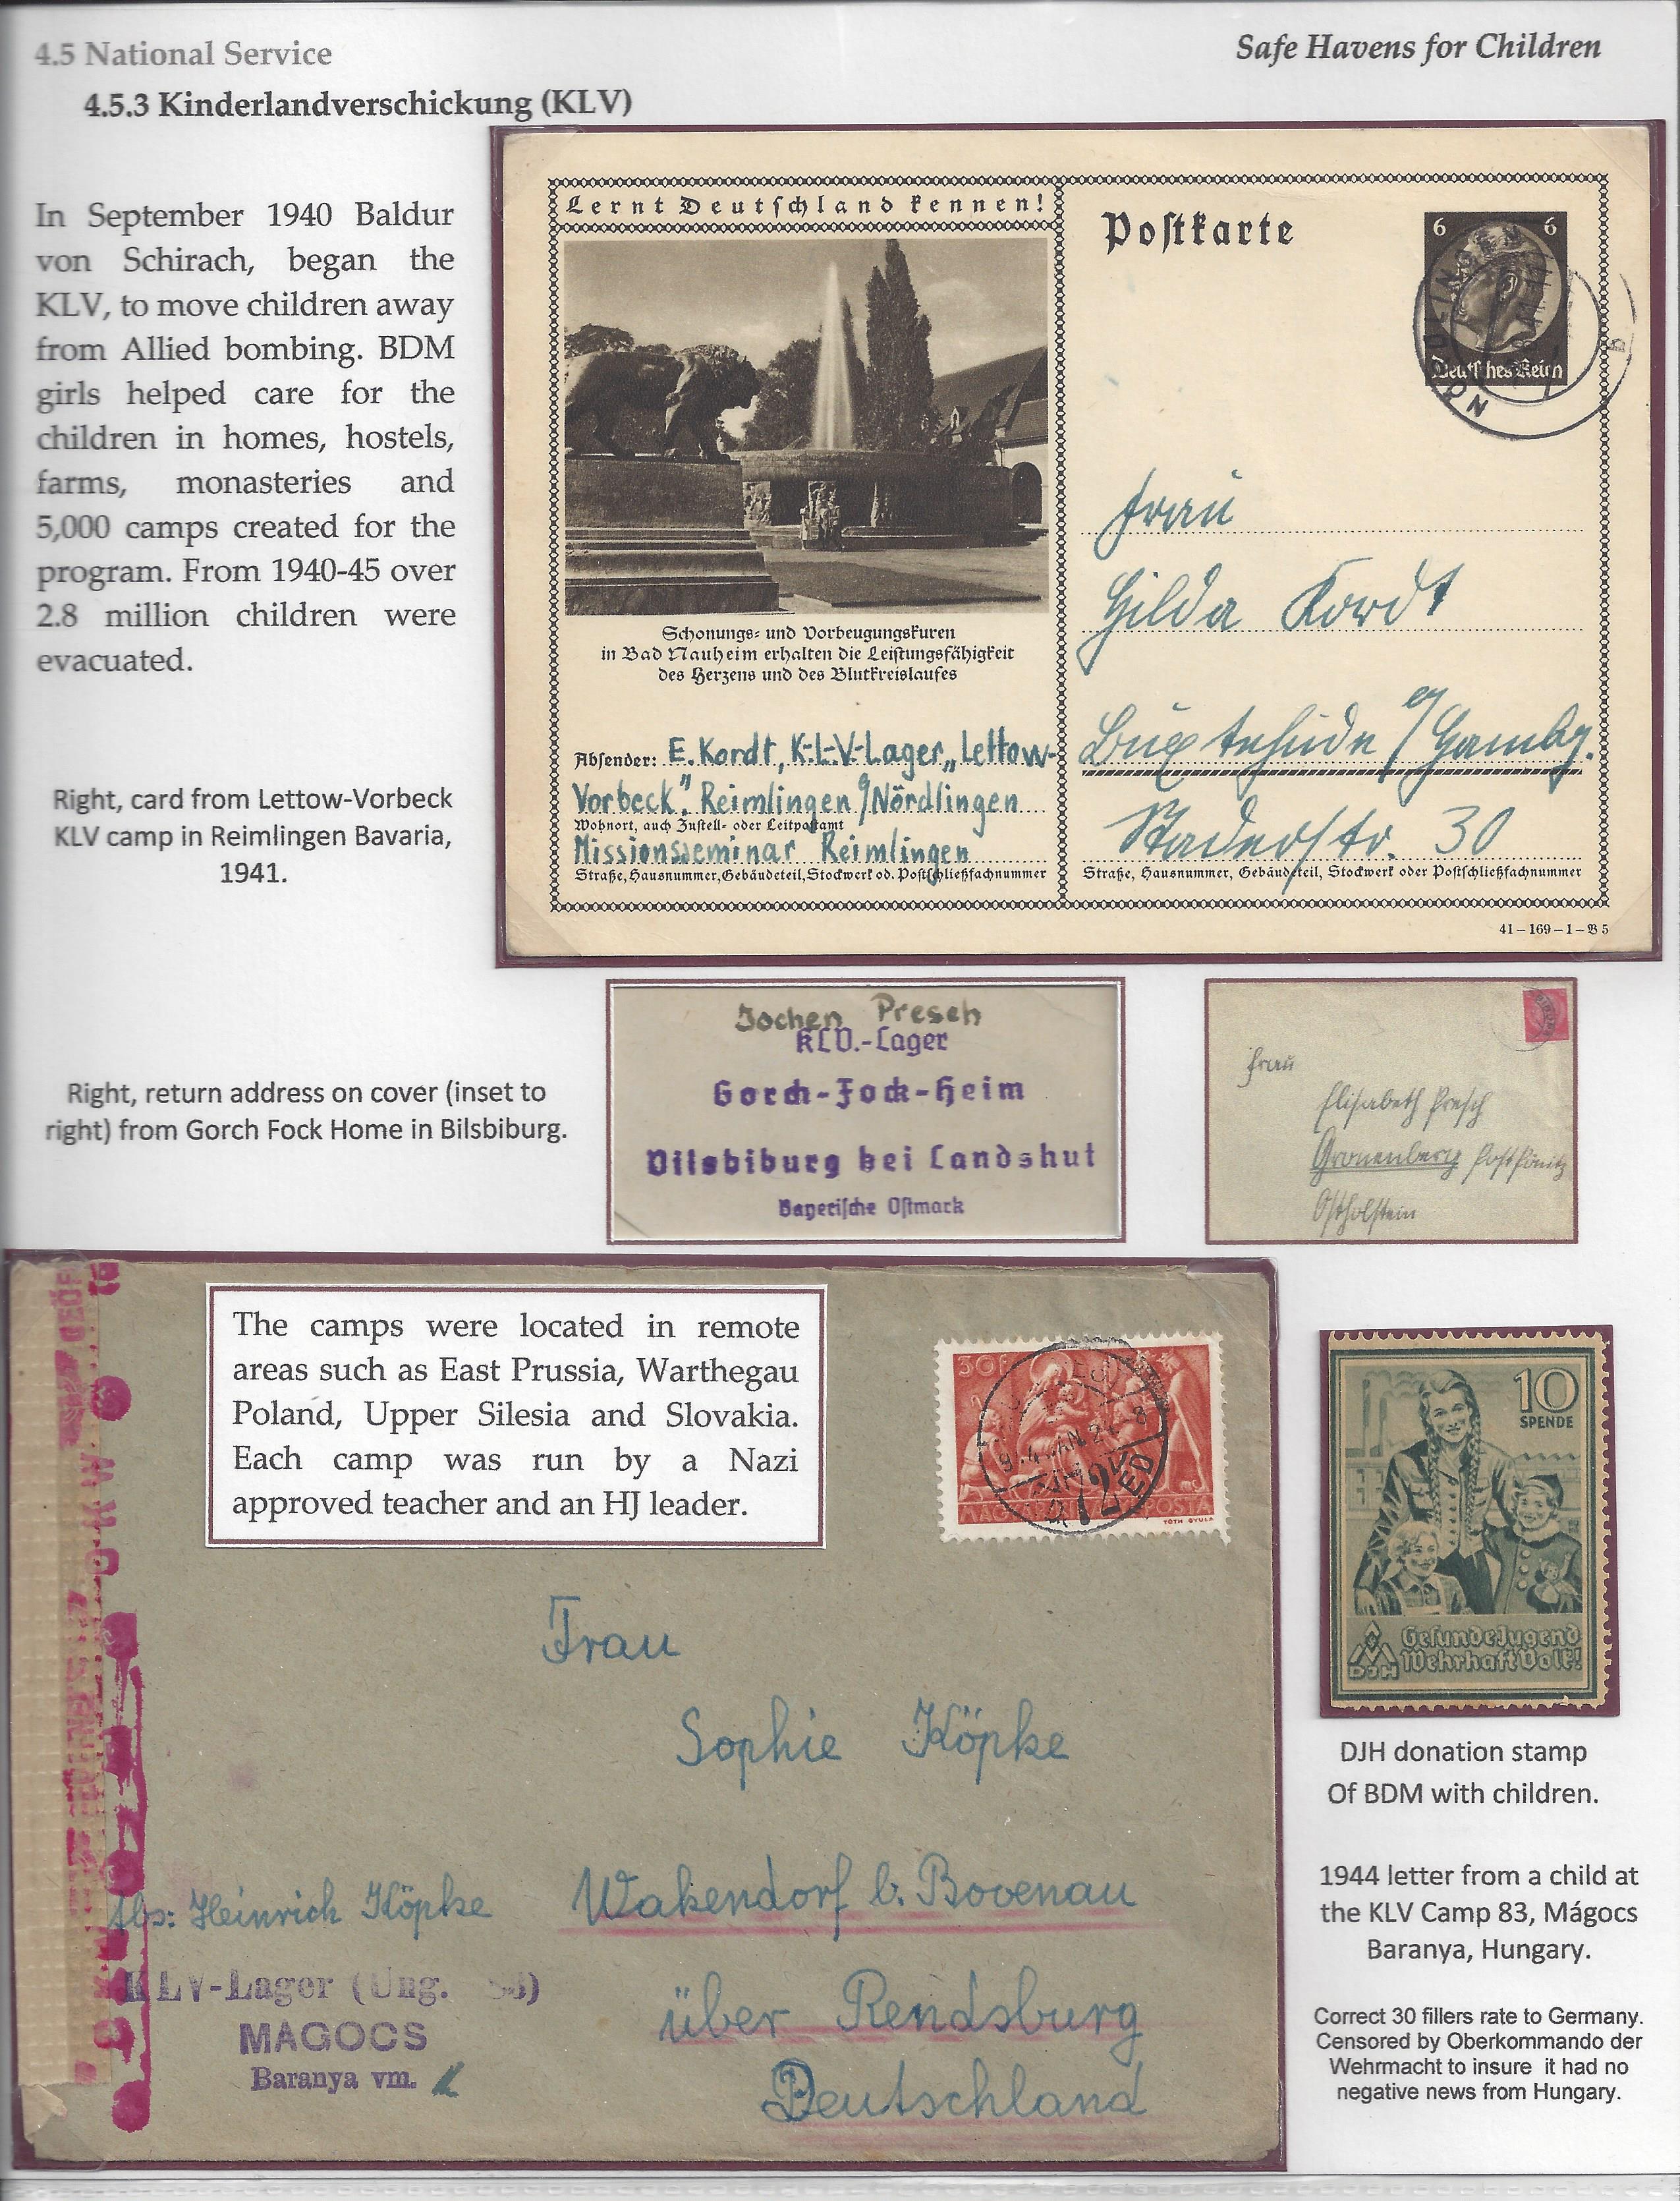 4.5 National Service
Safe Havens for Children
4.5.3 Kinderlandverschickung (KLV)
In September 1940 Baldur
von Schirach, began the
KLV, to move children away
from Allied bombing. BDM
girls helped care for the
children in homes, hostels,
farms, monasteries and
5,000 camps created for the
program. From 1940-45 over
2.8 million children were
evacuated.
Right, card from Lettow-Vorbeck
KLV camp in Reimlingen Bavaria,
1941.
Lernt Deutschland kennen!
Schonungs- und Vorbeugungskuren
in Bad Nauheim erhalten die Leistungsfähigkeit
des Herzens und des Blutkreislaufes
Absender: E. Kordt, K-L-V-Lager „Lettow-
Vorbeck". Reimlingen Nördlingen
Wohnort, auch Zustell- oder Leitpostamt
Missionsseminar Reimlingen
Straße, Hausnummer, Gebäudeteil, Stockwerk od. Postschließfachnummer
Postkarte
6 6
Deutsches Reich
Frau
Gilda Kordt
Buxtehude / Hambg.
Staderstr. 30
Straße, Hausnummer, Gebäudeteil, Stockwerk oder Postschließfachnummer
41-169-1-B 5
Right, return address on cover (inset to
right) from Gorch Fock Home in Bilsbiburg.
Jochen Presch
KLV.-Lager
Gorch-Fock-Heim
Vilsbiburg bei Landshut
Bayerische Ostmark
Frau
Elisabeth Presch
Gronenberg
Ostholstein
The camps were located in remote
areas such as East Prussia, Warthegau
Poland, Upper Silesia and Slovakia.
Each camp was run by a Nazi
approved teacher and an HJ leader.
30f
POSTA
TÓTH GYULA
Frau
Sophie Köpke
Abs: Heinrich Köpke
Wakendorf b. Bovenau
über Rendsburg
Deutschland
KLV-Lager (Ung.
MAGOCS
Baranya vm.
10
SPENDE
Gesunde Jugend
Wehrhaft Volk!
DJH
DJH donation stamp
Of BDM with children.
1944 letter from a child at
the KLV Camp 83, Mágocs
Baranya, Hungary.
Correct 30 fillers rate to Germany.
Censored by Oberkommando der
Wehrmacht to insure it had no
negative news from Hungary.